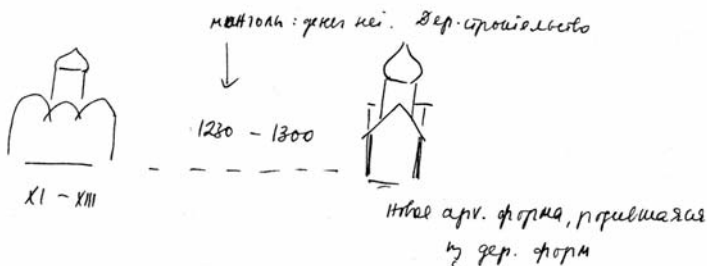 монголы: денег нет. Дер. строительство
1230 – 1300
XI – XIII
Новая арх. форма, родившаяся
из дер. форм